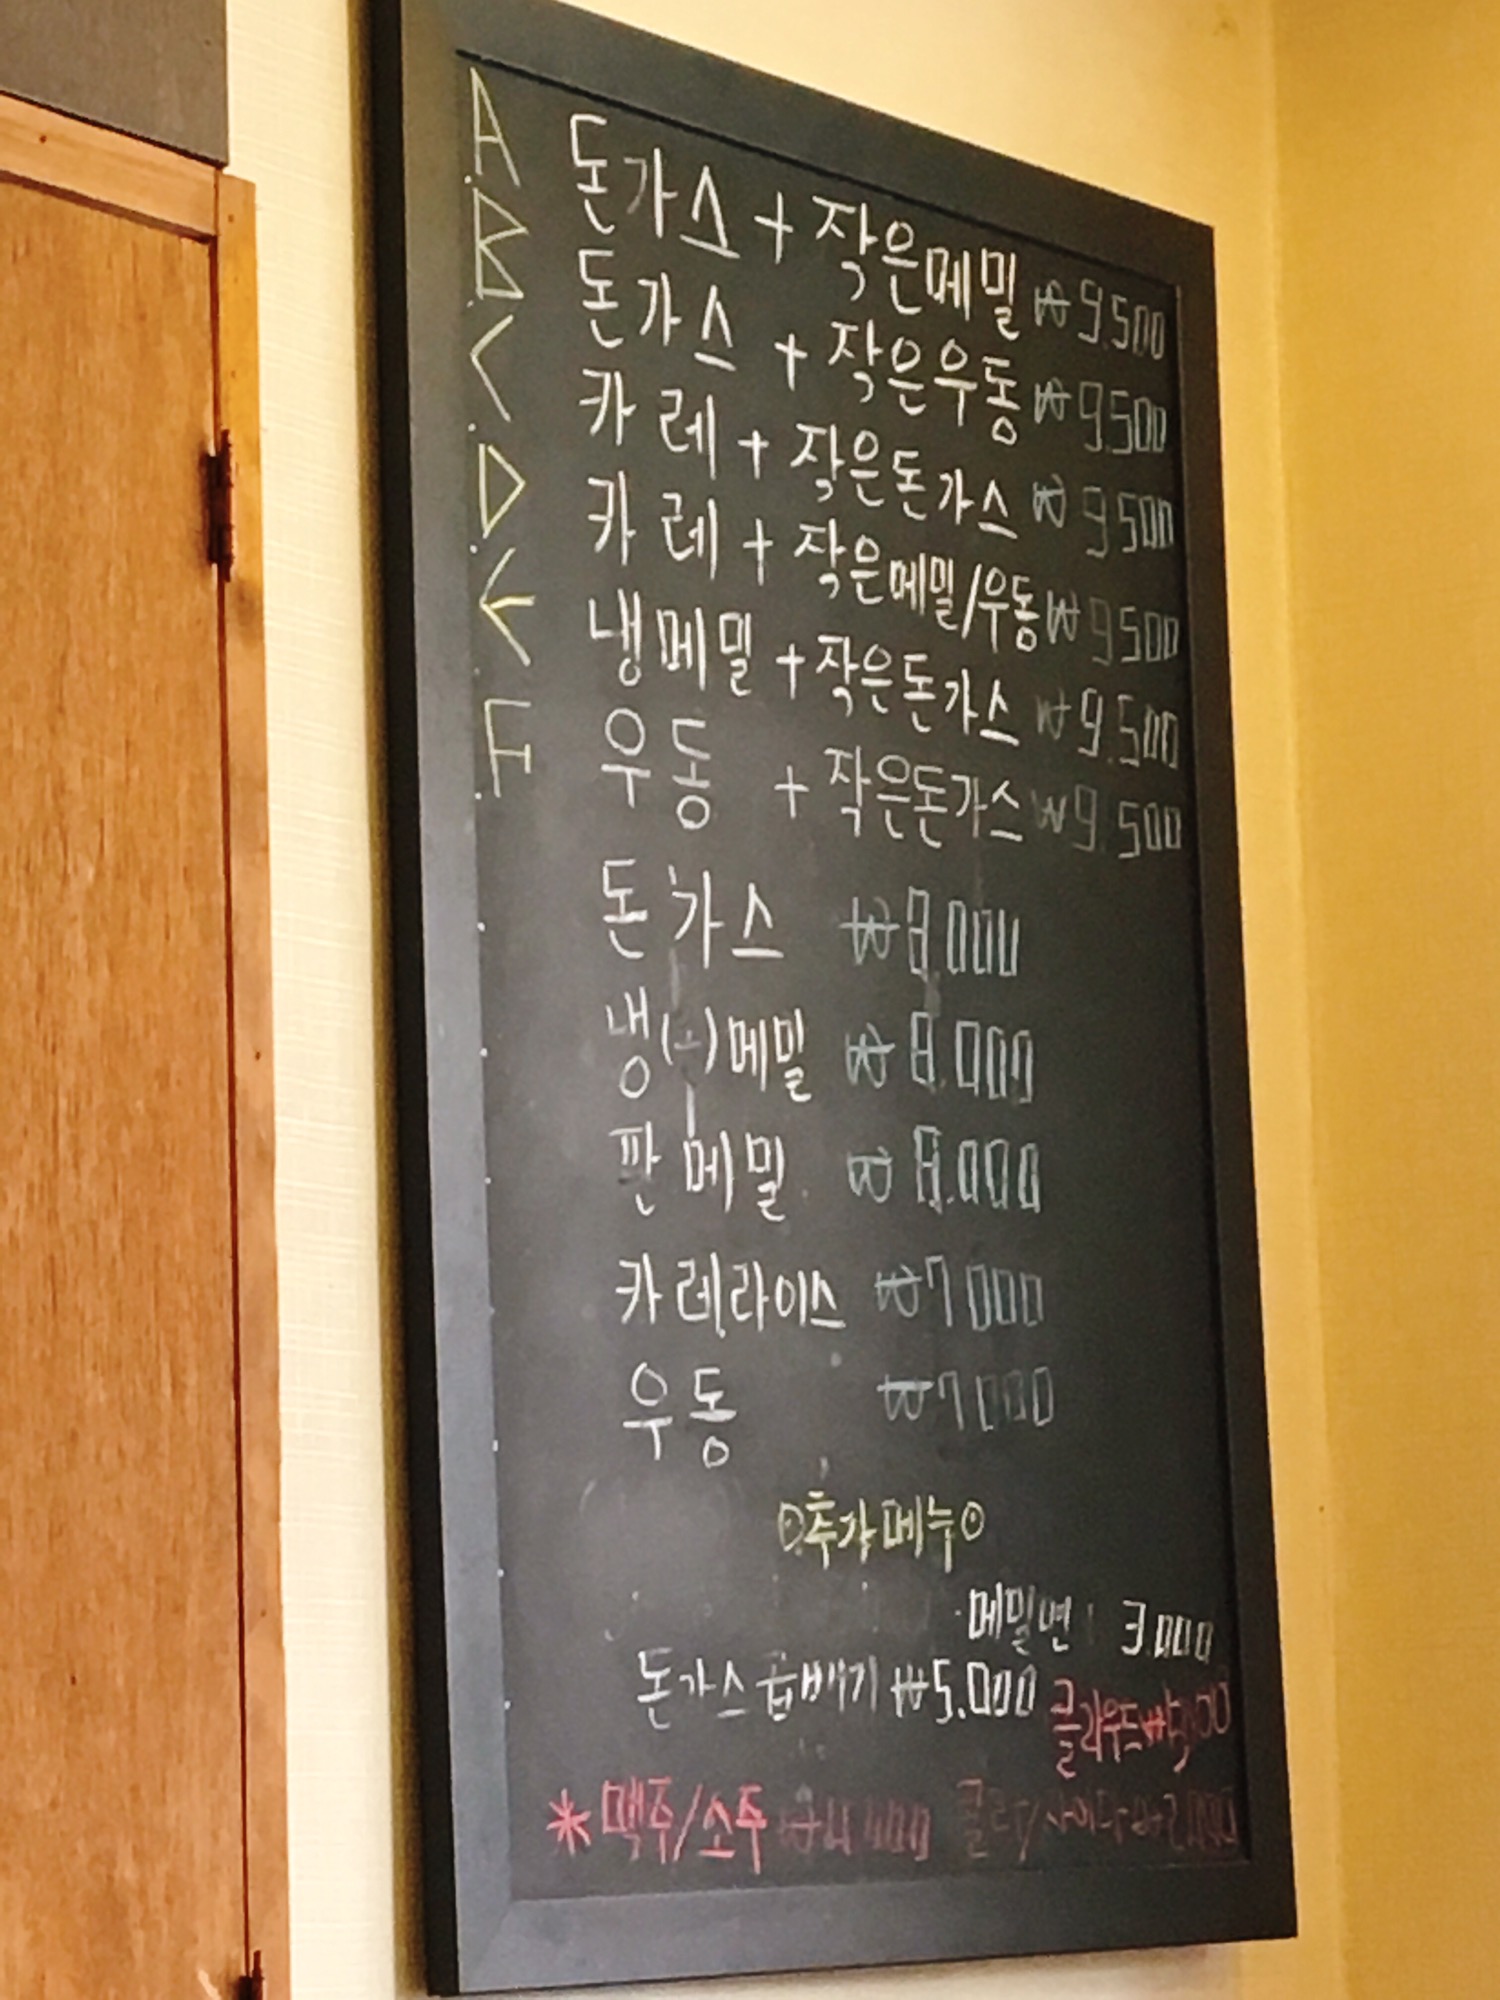 A 돈가스 + 작은메밀 ₩9.500
B 돈가스 + 작은우동 ₩9.500
C 카레 + 작은돈가스 ₩9500
D 카레 + 작은메밀/우동 ₩9500
E 냉메밀 + 작은돈가스 ₩9.500
F 우동 + 작은돈가스 ₩9.500
돈가스 ₩8.000
냉(온)메밀 ₩8.000
판메밀 ₩8.000
카레라이스 ₩7000
우동 ₩7000
⊙추가메뉴⊙
메밀면 : 3.000
돈가스곱배기 ₩5.000
클라우드₩5,000
*맥주/소주 ₩4.000 콜라/사이다₩2.000